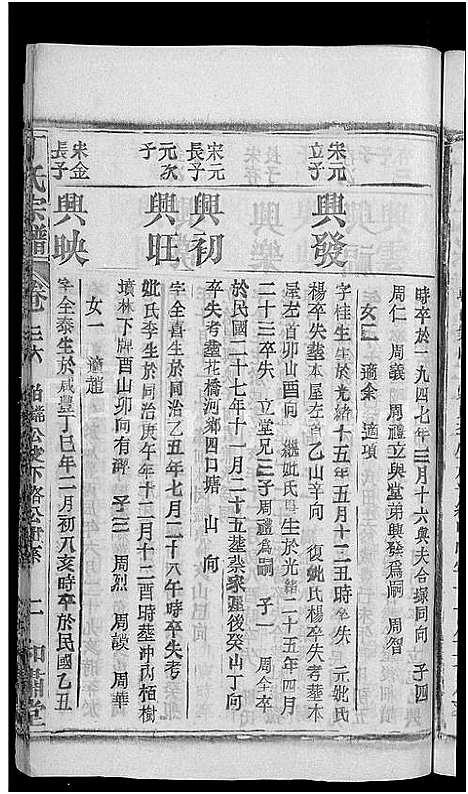 時卒於一九四七年三月十六與夫合塚同向 子四
周仁 周義 周禮立與堂弟興發爲嗣 周智
女二 適余 適項
宋元立子
興發
字桂生生於光緒十五年十二五時卒失 元妣氏
楊卒失葬本屋左首乙山辛向 復妣氏楊卒失考葬本
屋左首卯山酉向 繼妣氏 生於光緒二十五年四月
二十三卒失 立堂兄三子周禮爲嗣 子一 周全卒
宋元長子
興初
於民國二十七年十一月二十五葬蔡家 後癸山丁向
卒失考葬花橋河鄉四口塘 山 向
元次子
興旺
字全喜生於同治乙丑年七月二十八午時卒失考
妣氏李生於同治庚午年十二月十二酉時葬冲內栢樹
墳林下牌酉山卯向有碑 子三 周烈 周謨 周華
女一 適趙
宋金長子
興映
字全泰生於咸豐丁巳年二月初八亥時卒於民國乙丑
丁氏宗譜 卷三六
二